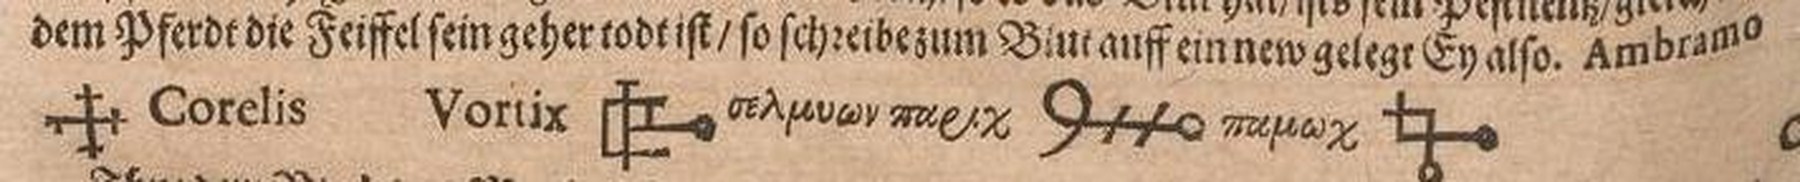 dem Pferdt die Feiffel sein geher todt ist / so schreibe zum Blut auff ein new gelegt Ey also. Ambramo
Corelis Vortix σελμυων παριχ παμωχ